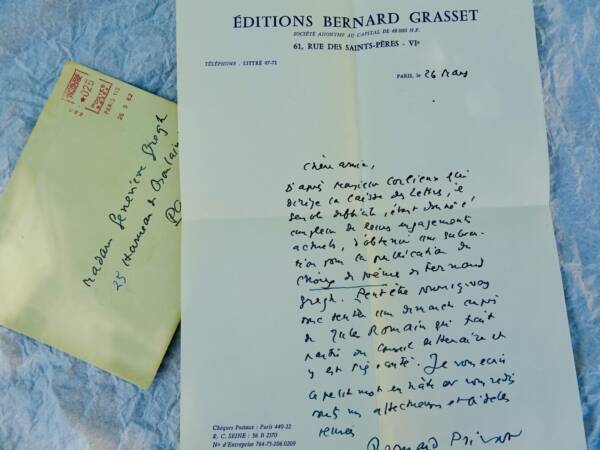 ÉDITIONS BERNARD GRASSET
SOCIÉTÉ ANONYME AU CAPITAL DE
61, RUE DES SAINTS-PÈRES - VIᵉ
TÉLÉPHONE : LITTRÉ 07-71
PARIS, le 26 Mars
Chère amie,
D'après Monsieur qui
dirige la Caisse des Lettres, il
semble difficile, étant donné l'
ampleur de leurs engagements
actuels, d'obtenir une subven
tion pour la publication du
Choix de Poèmes de Fernand
Gregh. Peut être pourriez-vous
tenter une démarche auprès
de Jules Romains qui fait
partie du Conseil littéraire et
y est très écouté. Je vous écris
ce petit mot en hâte et vous redis
mes affectueuses et fidèles
pensées
Bernard Privat
Chèques Postaux : Paris 449-12
R. C. SEINE : 56 B 2170
Nº d'Entreprise 764-75-106.0209
025
PARIS 110
26 3 62
Madame Geneviève Gregh
Hameau de Boulain